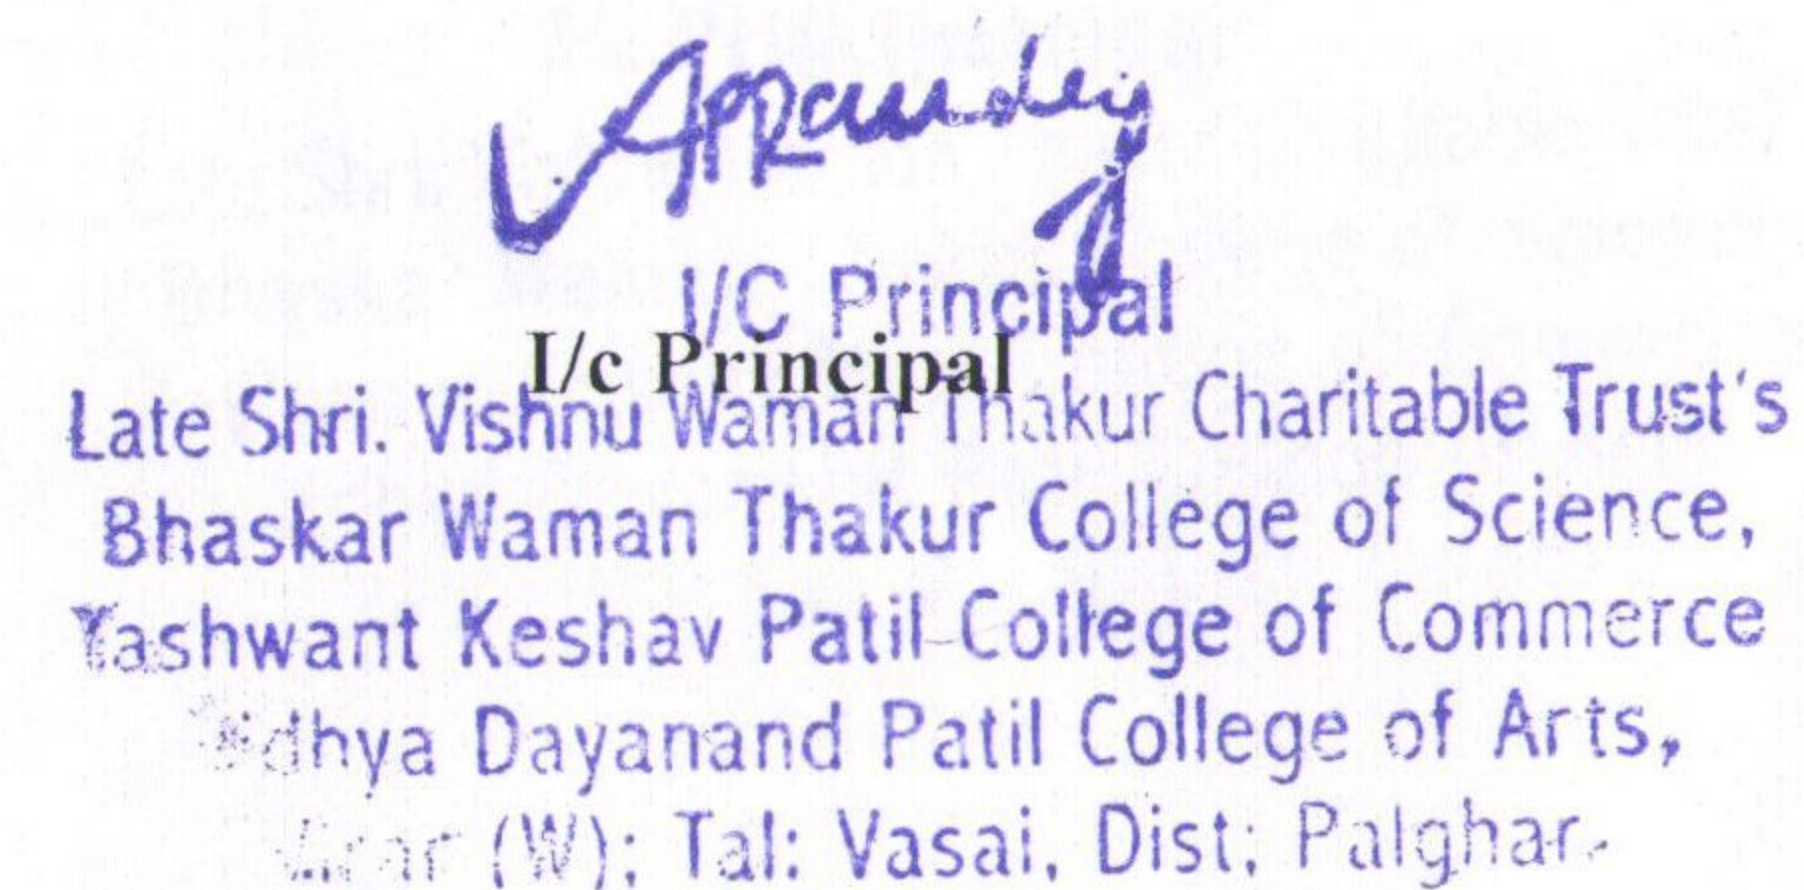 I/C Principal
I/c Principal
Late Shri. Vishnu Waman Thakur Charitable Trust's
Bhaskar Waman Thakur College of Science,
Yashwant Keshav Patil College of Commerce
Dayanand Patil College of Arts,
(W); Tal: Vasai, Dist; Palghar.